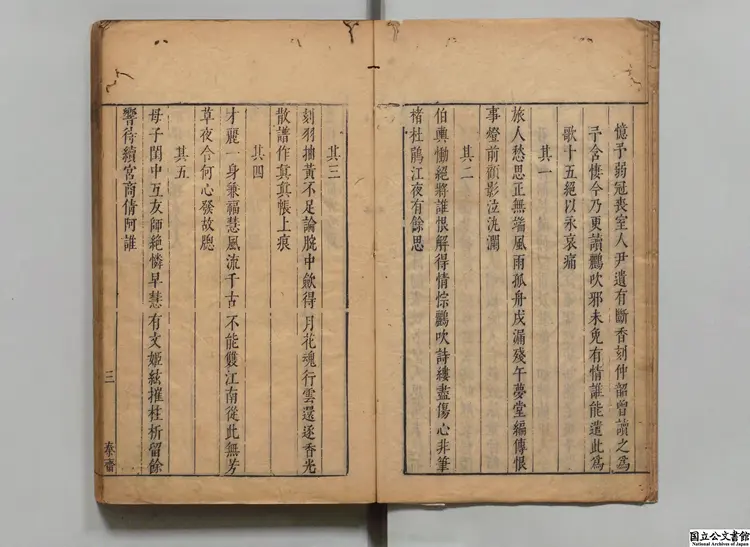 憶予弱冠喪室人尹遺有斷香刻仲韶曾讀之爲
予含悽今乃更讀鸝吹邪未免有情誰能遣此爲
歌十五絕以永哀痛
其一
旅人愁思正無端風雨孤舟戍漏殘午夢堂編傳恨
事燈前顧影泣汍瀾
其二
伯輿慟絕將誰恨解得情悰鸝吹詩縷盡傷心非筆
楮杜鵑江夜有餘思
其三
刻羽抽黃不足論腕中歛得月花魂行雲還逐香光
散譜作真真帳上痕
其四
才麗一身兼福慧風流千古不能雙江南從此無芳
草夜合何心發故牕
其五
母子閨中互友師絕憐早慧有文姬絃摧柱析留餘
響待續宮商倩阿誰
三
齋
国立公文書館
National Archives of Japan